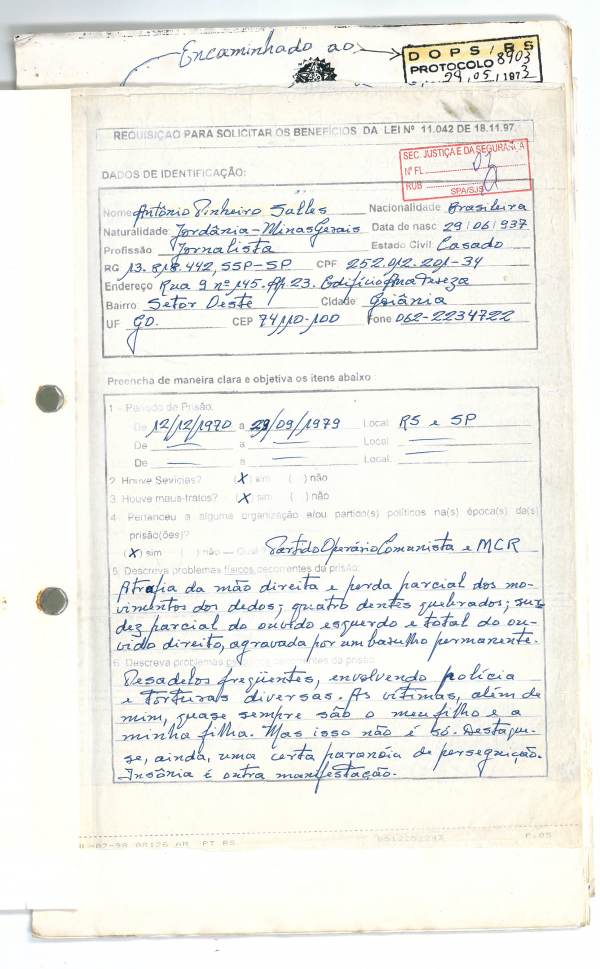 Encaminhado ao
DOPS/RS
PROTOCOLO 8903
29/05/1973
REQUISIÇÃO PARA SOLICITAR OS BENEFÍCIOS DA LEI Nº 11.042 DE 18.11.97.
SEC. JUSTIÇA E DA SEGURANÇA
Nº FL. 02
RUB.
SPA/SJS
DADOS DE IDENTIFICAÇÃO:
Nome Antônio Pinheiro Salles Nacionalidade Brasileira
Naturalidade Jordânia-Minas Gerais Data de nasc 29/06/937
Profissão Jornalista Estado Civil Casado
RG 13.818.442, SSP-SP CPF 252.012.201-34
Endereço Rua 9 nº 145. Ap. 23. Edifício Ana Tereza
Bairro: Setor Oeste Cidade Goiânia
UF GO. CEP 74110-100 Fone 062-2234722
Preencha de maneira clara e objetiva os itens abaixo
1 – Período de Prisão;
De 12/12/1970 a 29/09/1979 Local RS e SP
De — a — Local —
De — a — Local —
2. Houve Sevícias? (X) sim ( ) não
3. Houve maus-tratos? (X) sim ( ) não
4. Pertenceu a alguma organização e/ou partido(s) políticos na(s) época(s) da(s)
prisão(ões)?
(X) sim ( ) não — Qual? Partido Operário Comunista e MCR
5. Descreva problemas físicos decorrentes da prisão:
Atrofia da mão direita e perda parcial dos mo-
vimentos dos dedos; quatro dentes quebrados; sur-
dez parcial do ouvido esquerdo e total do ou-
vido direito, agravada por um barulho permanente.
6. Descreva problemas decorrentes da prisão
Pesadelos freqüentes, envolvendo polícia
e torturas diversas. As vítimas, além de
mim, quase sempre são o meu filho e a
minha filha. Mas isso não é só. Destaque-
se, ainda, uma certa paranóia de perseguição.
Insônia é outra manifestação.
-07-98 08:26 AM PT RS
0512282243
P.05